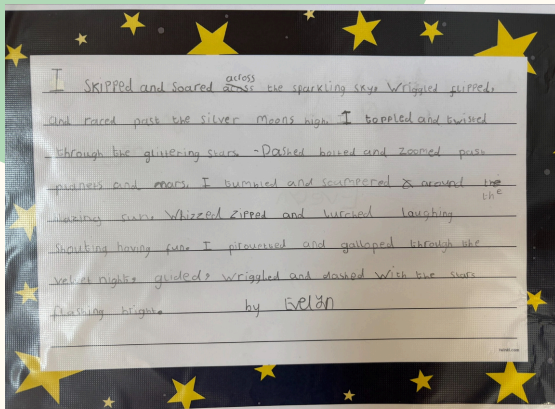 I skipped and soared across the sparkling sky, wriggled flipped,
and raced past the silver moons high. I toppled and twisted
through the glittering stars - Dashed bolted and zoomed past
planets and mars. I tumbled and scampered around the
blazing sun. Whizzed zipped and lurched laughing
shouting having fun. I pirouetted and galloped through the
velvet night, glided, wriggled and dashed with the stars
flashing bright. by Evelyn